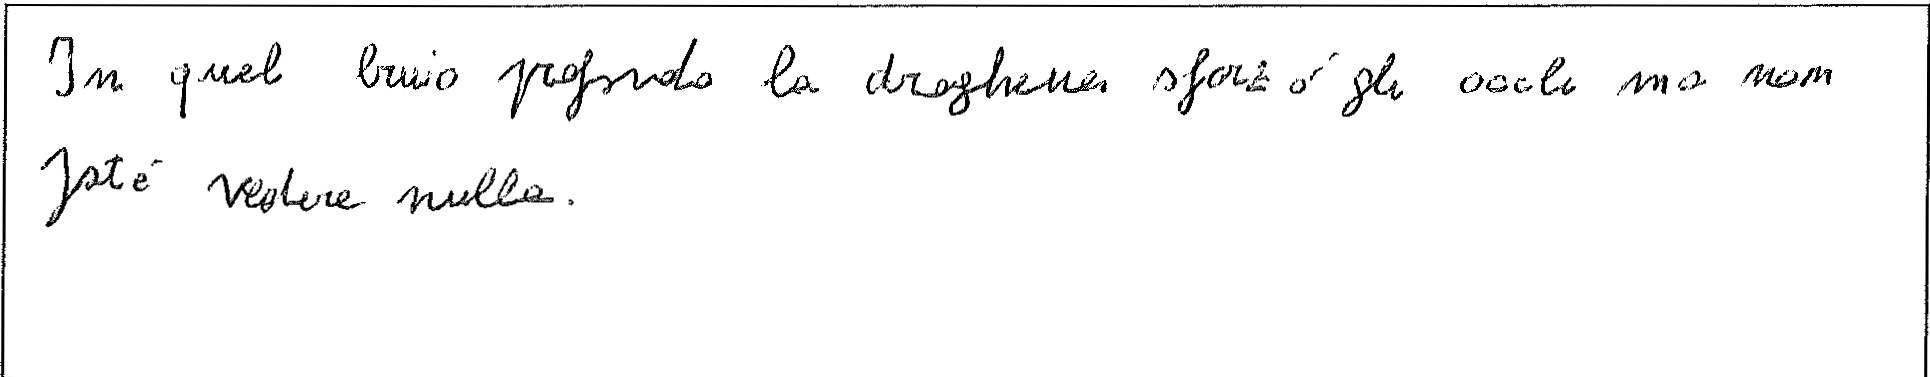 In quel buio profondo la droghiera sforzò gli occhi ma non
poté vedere nulla.